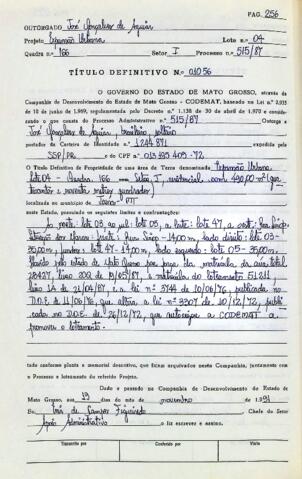 PAG. 256
OUTORGADO José Gonçalves de Aguiar
Projeto Expansão Urbana Lote n.o 04
Quadra n.o 166 Setor I Processo n.o 515/87
TÍTULO DEFINITIVO N.o 01056
O GOVERNO DO ESTADO DE MATO GROSSO, através da
Companhia de Desenvolvimento do Estado de Mato Grosso - CODEMAT, com base na Lei n.o 2.933
de 10 de junho de 1.969, regulamentada pelo Decreto n.o 1.138 de 30 de abril de 1.970 e considerando
o que consta do Processo Administrativo n.o 515/87 Outorga a
José Gonçalves de Aguiar, brasileiro, solteiro
portador da Carteira de Identidade n.o 1.244.871
expedida por
SSP/PR e do CPF n.o 013.595.409-72
o Título Definitivo de Propriedade de uma área de Terra denominada Expansão Urbana
lote 04 - Quadra 166 Setor I, residencial com 490,00 m² (qua
trocentos e noventa metros quadrados)
localizada no município de MT
neste Estado, possuindo os seguintes limites e confrontações:
ao norte: lote 03, ao sul: lote 05, a leste: lote 47, a oeste: Rua
frente: Rua - 14,00m, lado direito: lote 03-
35,00m, fundos: lote 47-14,00m, lado esquerdo: lote 05-35,00m.
pelo estado de Mato Grosso por força da matrícula da área total
28427, livro 2 de 19/05/87, e matrícula do loteamento 51211
livro 1A de 21/04/87, e lei nº 3744 de 10/06/76, publicada no
D.O.E. de 11/06/76, que altera a lei nº 3307 de 10/12/72, publi
cada no D.O.E. de 26/12/72, que autoriza a CODEMAT a
promover o loteamento.
tudo conforme planta e memorial descritivo, que ficam arquivados nesta Companhia, juntamente com
o Processo e loteamento do referido Projeto.
Dado e passado na Companhia de Desenvolvimento do Estado de
Mato Grosso, aos 19 dias do mês de novembro de 1.991
Eu, de Campos Figueiredo Chefe do Setor
Apoio Administrativo o fiz escrever e assino.
Transcrito por Conferido por Visto